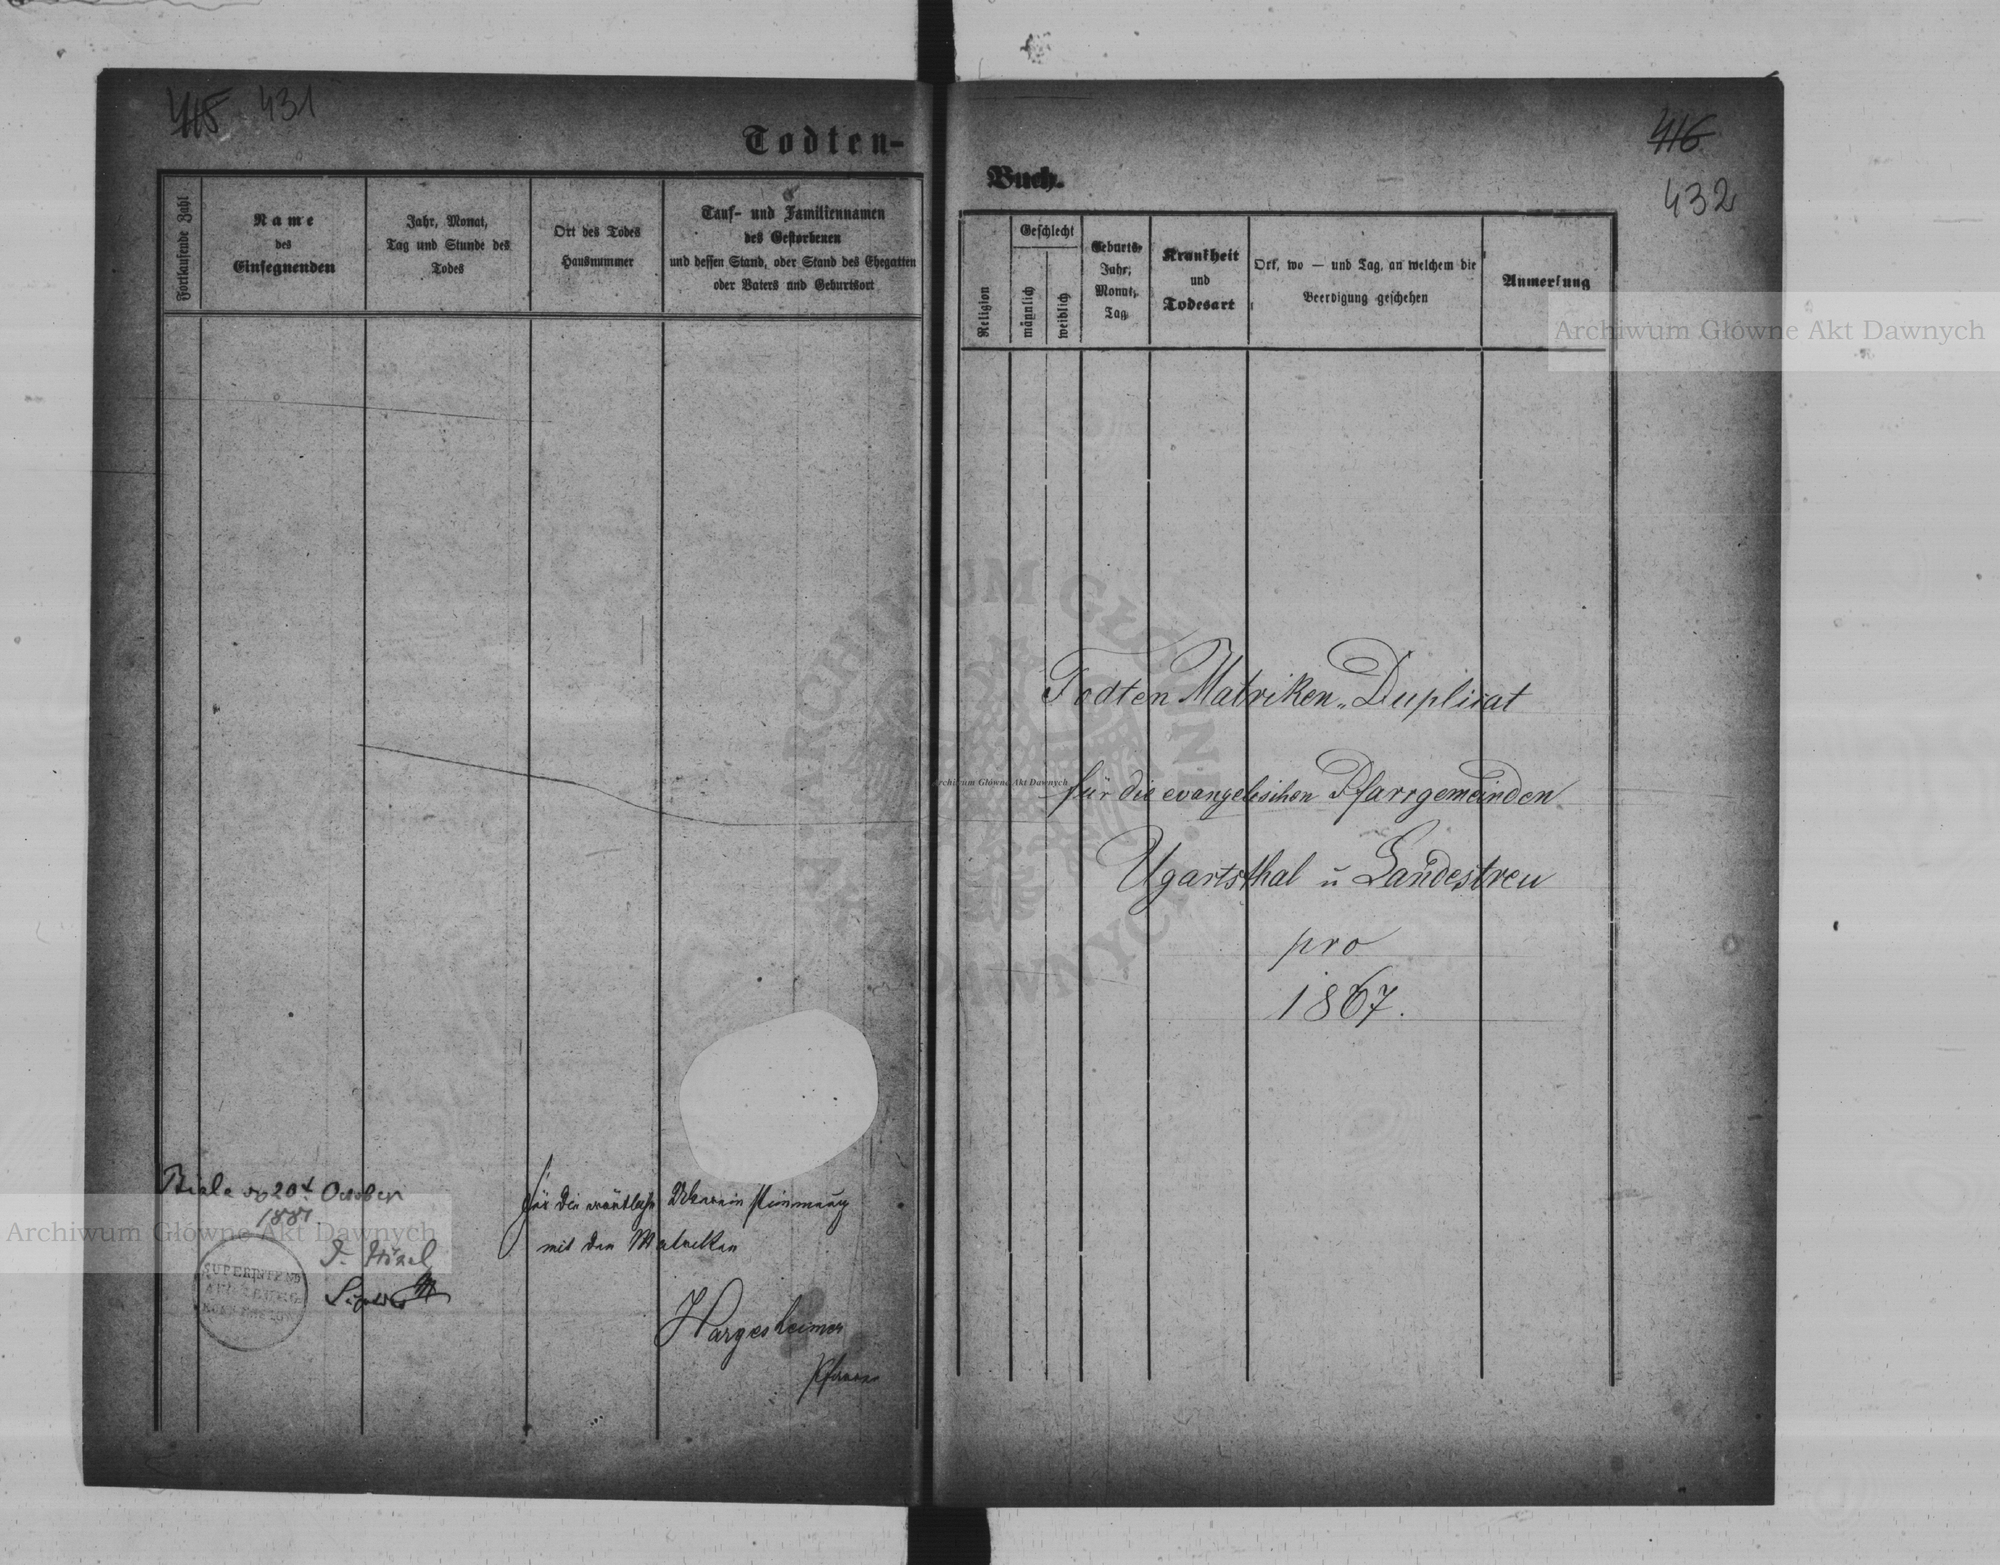 415 431
Todten-
Fortlaufende Zahl
Name
des
Einsegnenden
Jahr, Monat,
Tag und Stunde des
Todes
Ort des Todes
Hausnummer
Tauf- und Familiennamen
des Gestorbenen
und dessen Stand, oder Stand des Ehegatten
oder Vaters und Geburtsort
Biala 20t October
1887
für die
mit den Matriken
Hargesheimer
Pfarrer
SUPERINTEND
416
432
Buch.
Religion
Geschlecht
männlich
weiblich
Geburts-
Jahr,
Monat,
Tag
Krankheit
und
Todesart
Ort, wo — und Tag, an welchem die
Beerdigung geschehen
Anmerkung
Archiwum Główne Akt Dawnych
Todten Matriken„Duplicat
Archiwum Główne Akt Dawnych
für die evangelischen Pfarrgemeinden
Ugartsthal u Landestreu
pro
1867.
Archiwum Główne Akt Dawnych
ARCHIWUM GŁÓWNE AKT DAWNYCH